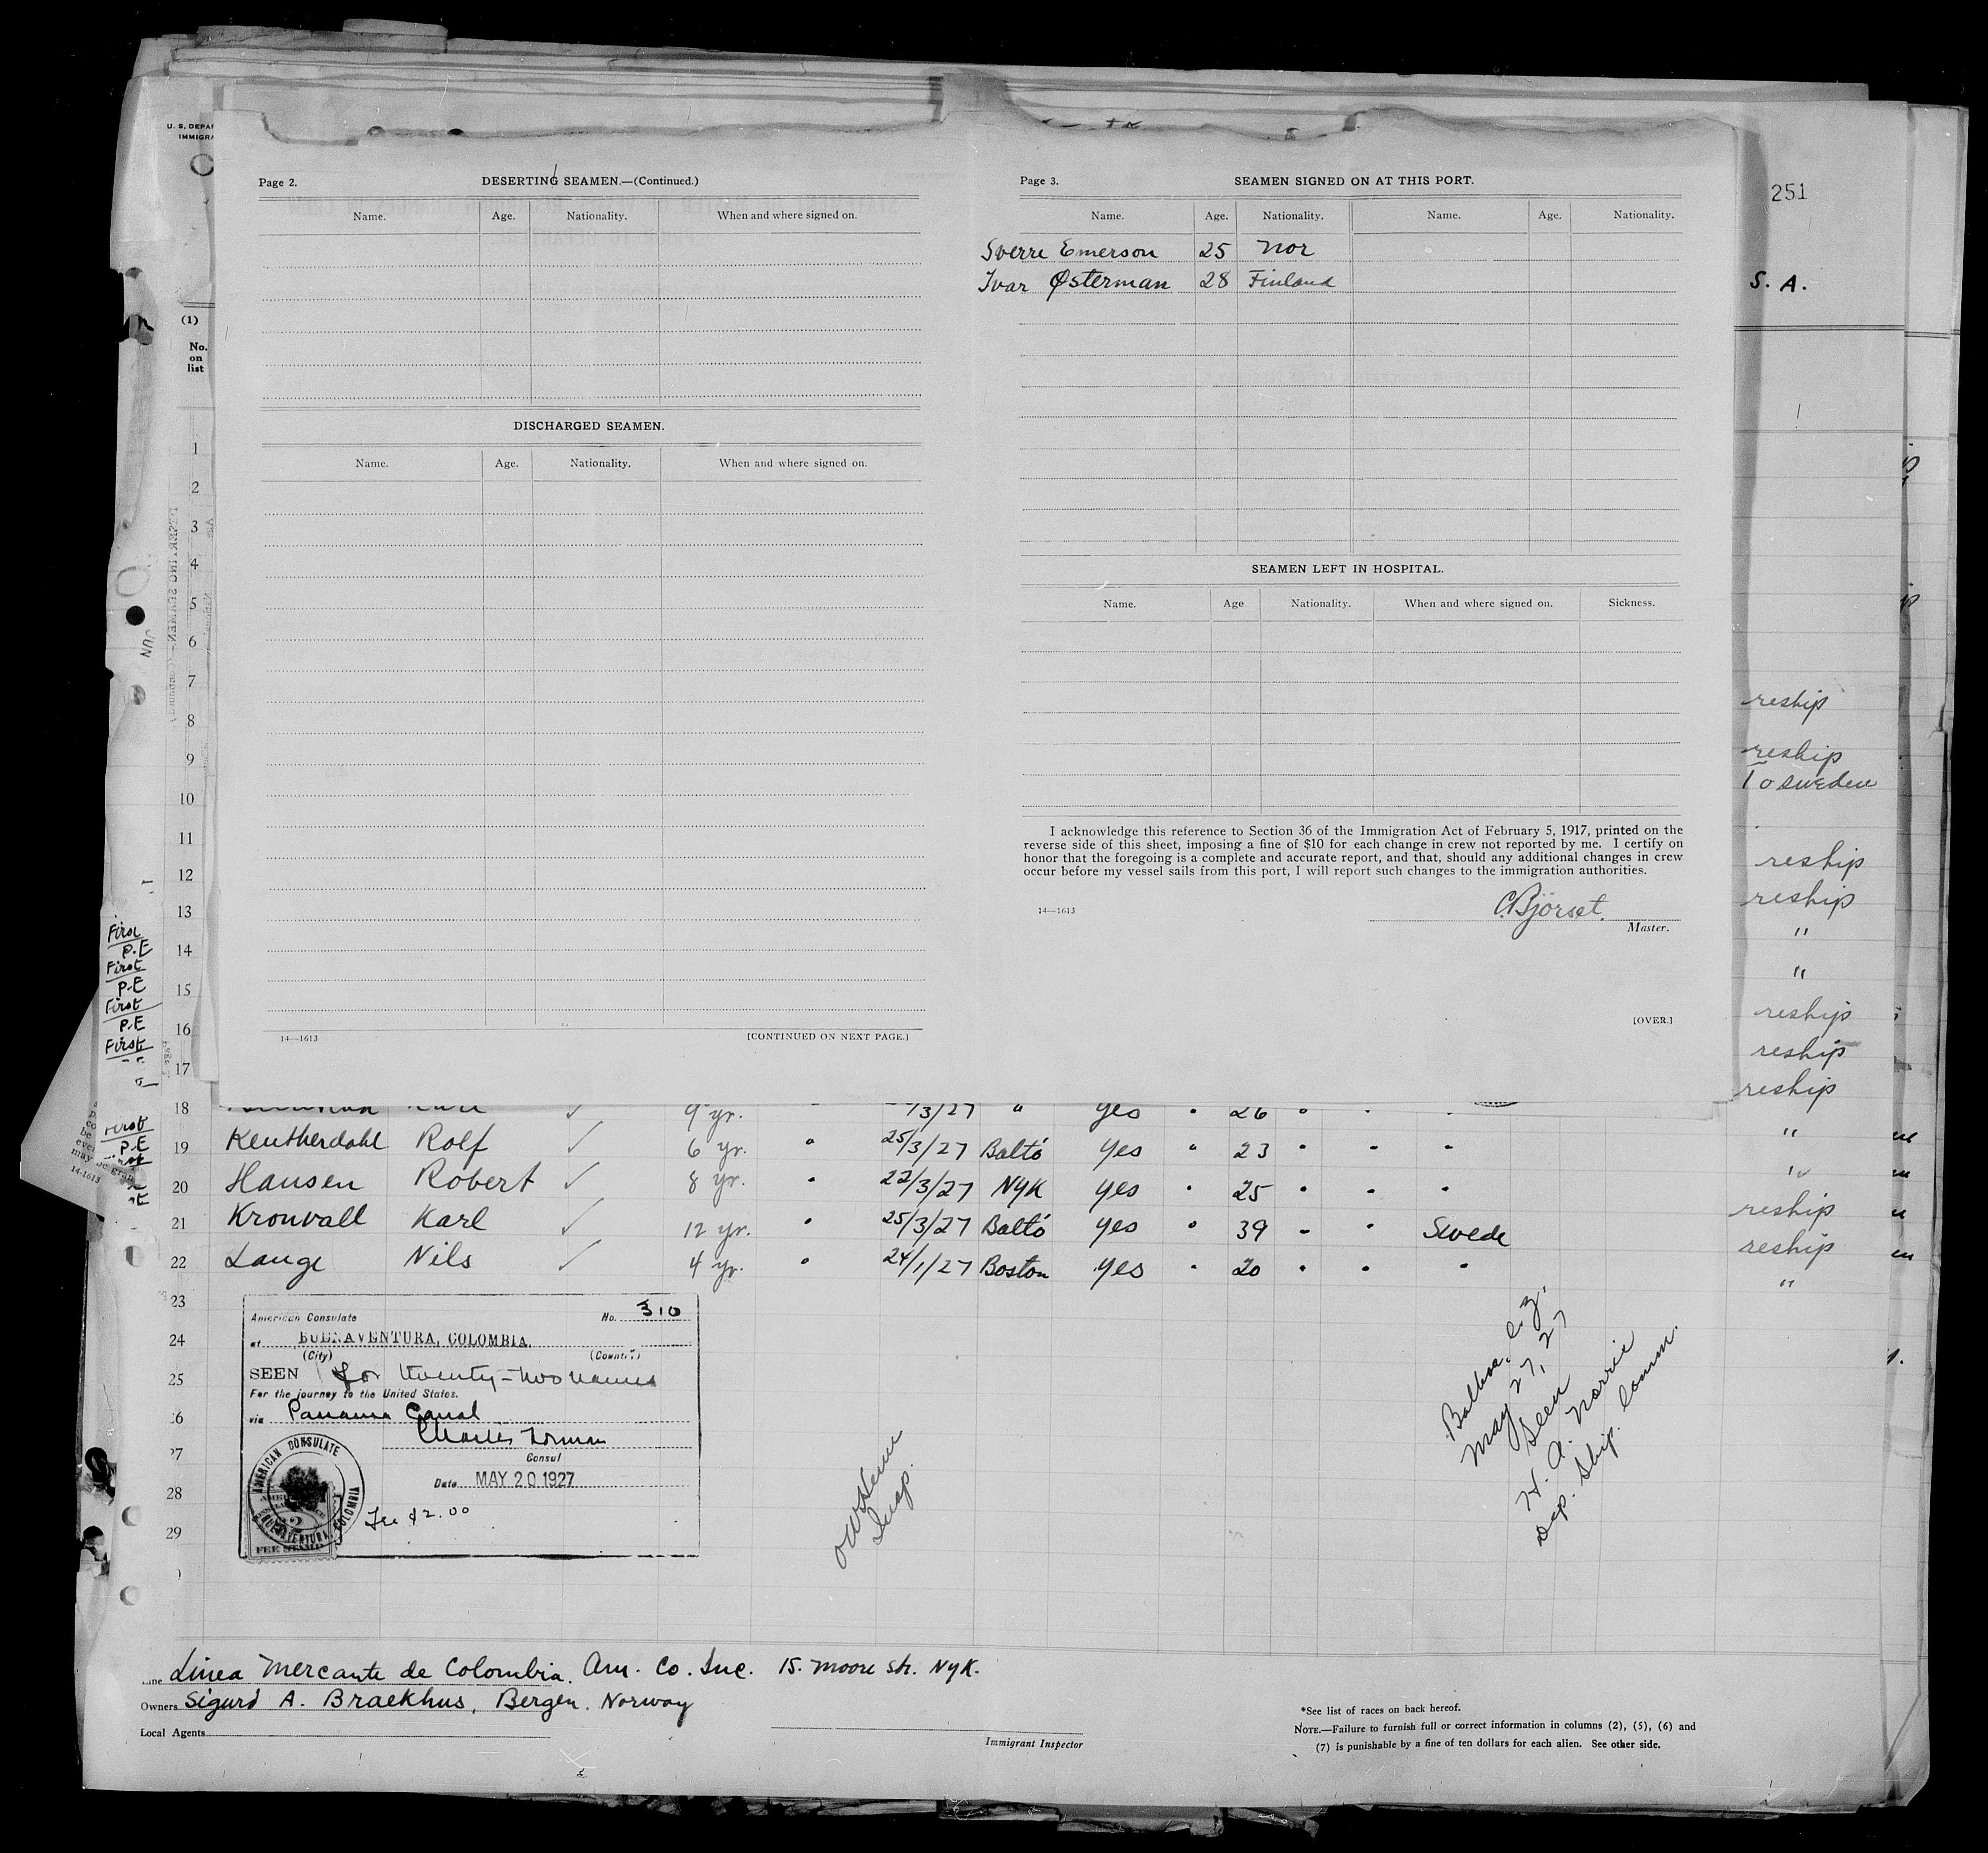 U. S. DEPA
IMMIGRA
251
S. A.
Page 2. DESERTING SEAMEN.—(Continued.)
Name. Age. Nationality. When and where signed on.
DISCHARGED SEAMEN.
Name. Age. Nationality. When and where signed on.
14—1613 [CONTINUED ON NEXT PAGE.]
Page 3. SEAMEN SIGNED ON AT THIS PORT.
Name. Age. Nationality. Name. Age. Nationality.
Sverre Emerson 25 Nor
Ivar Østerman 28 Finland
SEAMEN LEFT IN HOSPITAL.
Name. Age Nationality. When and where signed on. Sickness.
I acknowledge this reference to Section 36 of the Immigration Act of February 5, 1917, printed on the
reverse side of this sheet, imposing a fine of $10 for each change in crew not reported by me. I certify on
honor that the foregoing is a complete and accurate report, and that, should any additional changes in crew
occur before my vessel sails from this port, I will report such changes to the immigration authorities.
14—1613
C. Bjorset.
Master.
[OVER.]
(1)
No.
on
list
1
2
3
4
5
6
7
8
9
10
11
12
13
14
15
16
17
JUN
First
P.E
First
P.E
First
P.E
First
First
P.E
reship
reship
To Sweden
reship
reship
"
"
reship
reship
reship
18 9 yr. " /3/27 " yes " 26 " " "
19 Keutherdahl Rolf ✓ 6 yr. " 25/3/27 Balto yes " 23 " " " "
20 Hansen Robert ✓ 8 yr. " 22/3/27 NYK yes " 25 " " " "
21 Kronvall Karl ✓ 12 yr. " 25/3/27 Balto yes " 39 " " Swede reship
22 Lange Nils ✓ 4 yr. " 24/1/27 Boston yes " 20 " " " reship
"
23
24
25
26
27
28
29
American Consulate No. 310
at BUENAVENTURA, COLOMBIA.
(City) (Country)
SEEN for twenty-two names
For the journey to the United States.
via Panama Canal
Charles Forman
Consul
Date MAY 20 1927
Fee $2.00
AMERICAN CONSULATE
BUENAVENTURA, COLOMBIA
FEE STAMP
Insp.
Balboa, C.Z.
May 27, 27
Seen
H. A. Norrie
Dep. Ship. Comm.
14-1613
Line Linea Mercante de Colombia. Am. Co. Inc. 15. Moore Str. NYK.
Owners Sigurd A. Braekhus, Bergen. Norway
Local Agents
Immigrant Inspector
*See list of races on back hereof.
NOTE.—Failure to furnish full or correct information in columns (2), (5), (6) and
(7) is punishable by a fine of ten dollars for each alien. See other side.